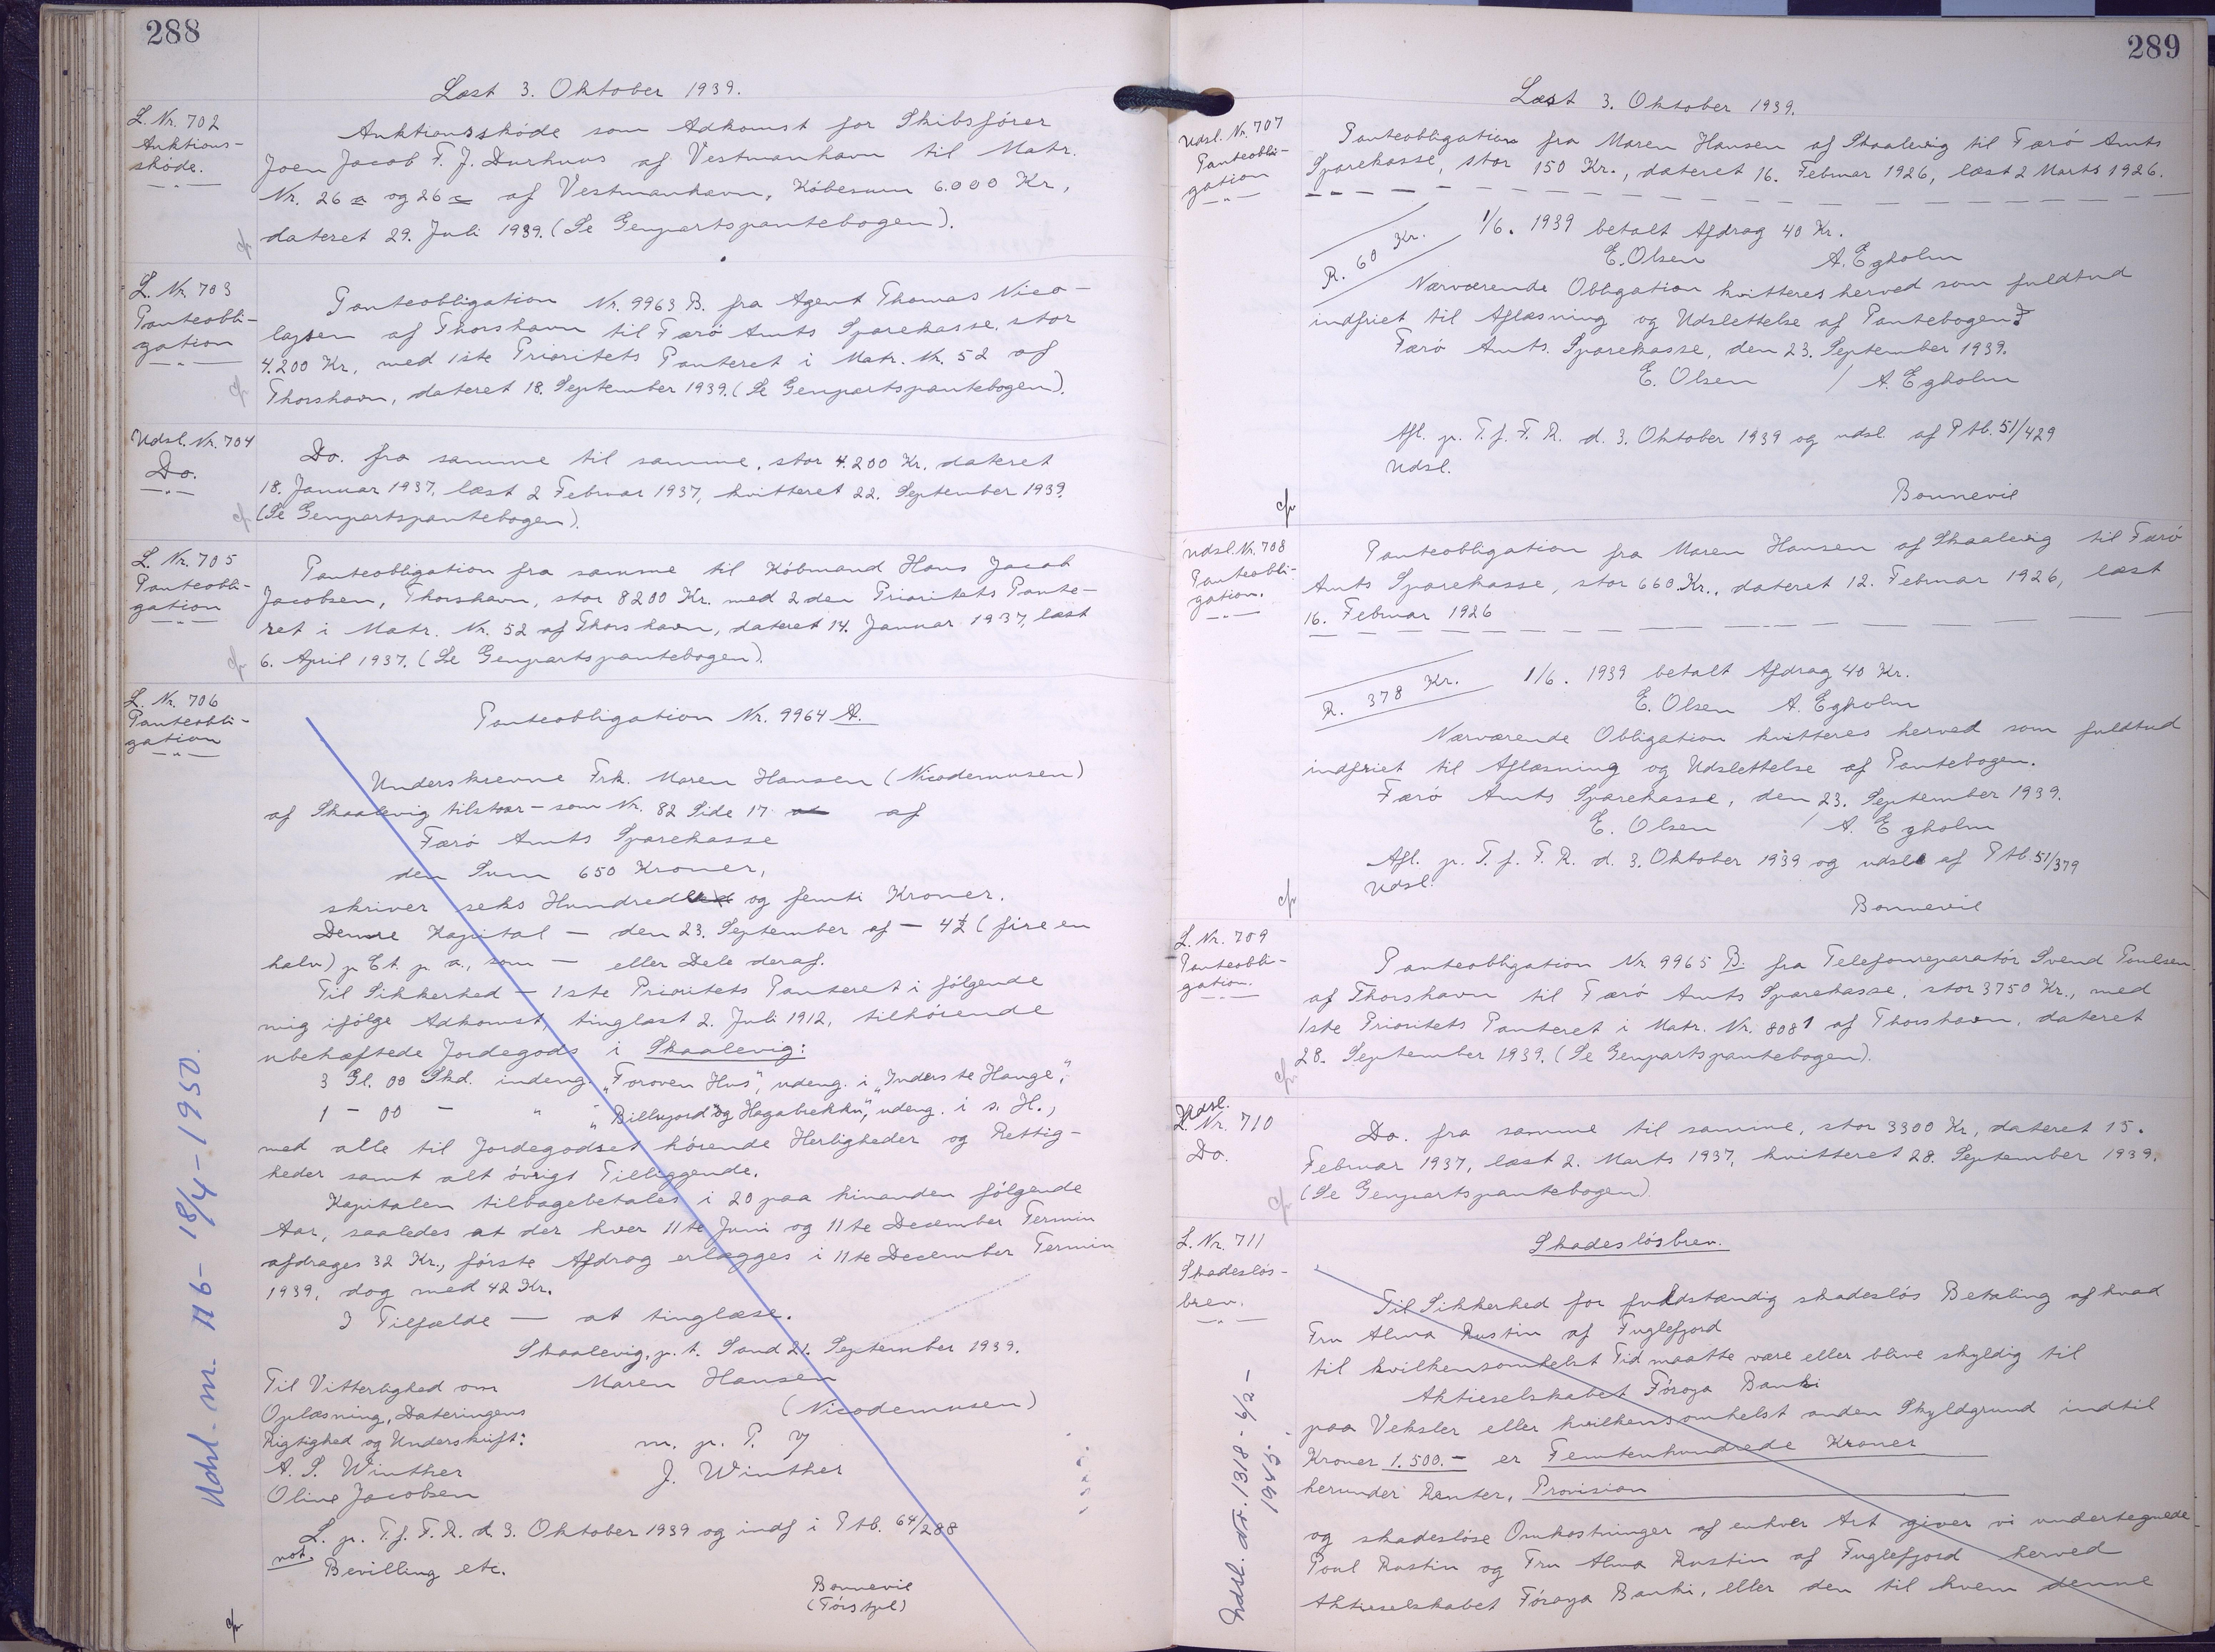 288
Læst 3. Oktober 1939.
L. Nr. 702
Auktions-
skøde.
Auktionsskøde som Adkomst for Skibsfører
Joen Jacob F. J. Durhuus af Vestmanhavn til Matr.
Nr. 26 a og 26 c af Vestmanhavn, Købesum 6.000 Kr,
dateret 29. Juli 1939. (Se Genpartspantebogen).
L. Nr. 703
Panteobli-
gation
Panteobligation Nr. 9963 B. fra Agent Thomas Nico-
lajsen af Thorshavn til Færø Amts Sparekasse, stor
4.200 Kr, med 1ste Prioritets Panteret i Matr. Nr. 52 af
Thorshavn, dateret 18. September 1939. (Se Genpartspantebogen).
Udsl. Nr. 704
Do.
Do. fra samme til samme, stor 4.200 Kr. dateret
18. Januar 1937, læst 2 Februar 1937, kvitteret 22. September 1939.
(Se Genpartspantebogen).
L. Nr. 705
Panteobli-
gation
Panteobligation fra samme til Købmand Hans Jacob
Jacobsen, Thorshavn, stor 8200 Kr. med 2den Prioritets Pante-
ret i Matr. Nr. 52 af Thorshavn, dateret 14. Januar 1937, læst
6. April 1937. (Se Genpartspantebogen).
L. Nr. 706
Panteobli-
gation
Panteobligation Nr. 9964 A.
Underskrevne Frk. Maren Hansen (Nicodemusen)
af Skaalevig tilstaar – som Nr. 82 Side 17 af
Færø Amts Sparekasse
den Sum 650 Kroner,
skriver seks Hundrede og femti Kroner.
Denne Kapital – den 23. September af – 4½ (fire en
halv) p Ct. p a., som – eller Dele deraf.
Til Sikkerhed – 1ste Prioritets Panteret i følgende
mig ifølge Adkomst, tinglæst 2. Juli 1912, tilhørende
ubehæftede Jordegods i Skaalevig:
3 Gl. 00 Skd. indeng. „Foroven Hus", udeng. i „Inderste Hauge",
1 – 00 – " „Billugjord og Hagabrekku", udeng. i s. H.,
med alle til Jordegodset hørende Herligheder og Rettig-
heder samt alt øvrigt Tilliggende.
Kapitalen tilbagebetales i 20 paa hinanden følgende
Aar, saaledes at der hver 11te Juni og 11te December Termin
afdrages 32 Kr., første Afdrag erlægges i 11te December Termin
1939, dog med 42 Kr.
I Tilfælde – at tinglæse.
Skaalevig, p. t. Sand 21. September 1939.
Til Vitterlighed om Maren Hansen
Oplæsning, Dateringens (Nicodemusen)
Rigtighed og Underskrift: m. p. P.
A. S. Winther J. Winther
Oline Jacobsen
L. p. T. f. F. R. d. 3. Oktober 1939 og indf i Ptb. 64/288
not.
Bevilling etc.
Bonnevie
(Förs tpl)
Udsl. m. 116 – 18/4 – 1950.
289
Læst 3. Oktober 1939.
Udsl. Nr. 707
Panteobli-
gation
Panteobligation fra Maren Hansen af Skaalevig til Færø Amts
Sparekasse, stor 150 Kr., dateret 16. Februar 1926, læst 2 Marts 1926.
R. 60 Kr.
1/6. 1939 betalt Afdrag 40 Kr.
E. Olsen A. Egholm
Nærværende Obligation kvitteres herved som fuldtud
indfriet til Aflæsning og Udslettelse af Pantebogen.
Færø Amts. Sparekasse, den 23. September 1939.
E. Olsen / A. Egholm
Afl. p. T. f. F. R. d. 3. Oktober 1939 og udsl. af Ptb. 51/429
Udsl.
Bonnevie
Udsl. Nr. 708
Panteobli-
gation.
Panteobligation fra Maren Hansen af Skaalevig til Færø
Amts Sparekasse, stor 660 Kr., dateret 12. Februar 1926, læst
16. Februar 1926
R. 378 Kr.
1/6. 1939 betalt Afdrag 40 Kr.
E. Olsen A. Egholm
Nærværende Obligation kvitteres herved som fuldtud
indfriet til Aflæsning og Udslettelse af Pantebogen.
Færø Amts Sparekasse, den 23. September 1939.
E. Olsen / A. Egholm
Afl. p. T. f. F. R. d. 3. Oktober 1939 og udsl. af Ptb. 51/379
Udsl.
Bonnevie
L. Nr. 709
Panteobli-
gation.
Panteobligation Nr 9965 B. fra Telefonreparatør Svend Poulsen
af Thorshavn til Færø Amts Sparekasse, stor 3750 Kr., med
1ste Prioritets Panteret i Matr. Nr. 808 1 af Thorshavn, dateret
28. September 1939. (Se Genpartspantebogen).
Udsl.
L. Nr. 710
Do.
Do. fra samme til samme, stor 3300 Kr, dateret 15.
Februar 1937, læst 2. Marts 1937, kvitteret 28. September 1939.
(Se Genpartspantebogen)
L. Nr. 711
Skadesløs-
brev.
Skadesløsbrev.
Til Sikkerhed for fuldstændig skadesløs Betaling af hvad
Fru Alma Rustin af Fuglefjord
til hvilkensomhelst Tid maatte være eller blive skyldig til
Aktieselskabet Føroya Banki
paa Veksler eller hvilkensomhelst anden Skyldgrund indtil
Kroner 1.500.– er Femtenhundrede Kroner
herunder Renter, Provision
og skadesløse Omkostninger af enhver Art giver vi undertegnede
Poul Rustin og Fru Alma Rustin af Fuglefjord herved
Aktieselskabet Føroya Banki, eller den til hvem denne
Udsl. Nr. 1318 – 6/2 –
1945.